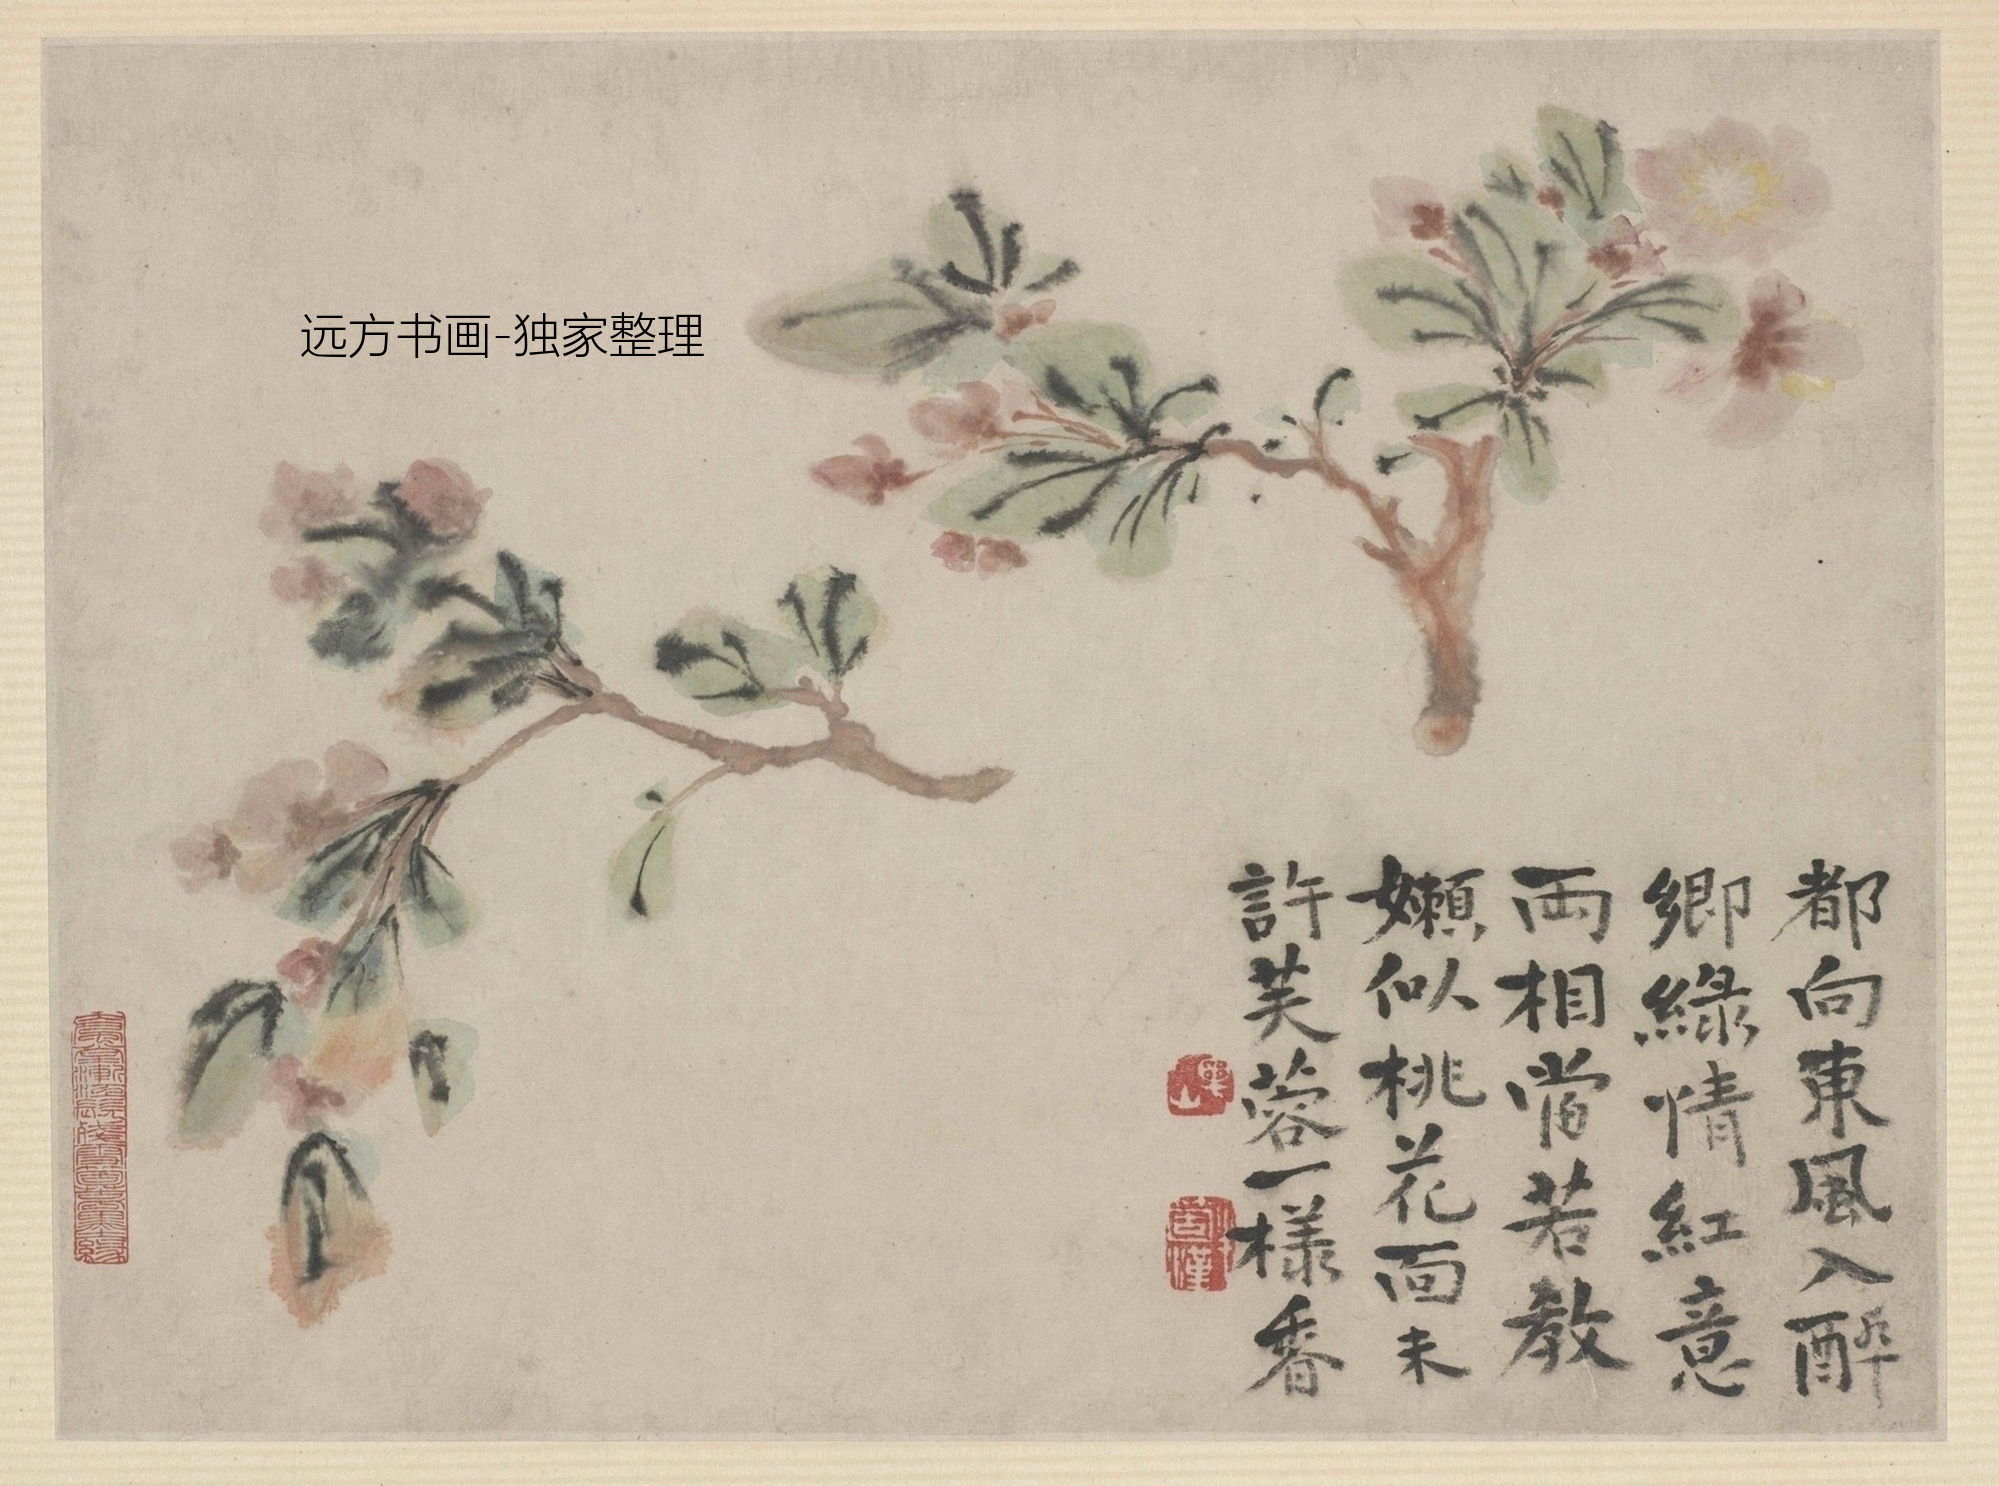 远方书画-独家整理
都向東風入醉
鄉綠情紅意
兩相當若教
嬾似桃花面未
許芙蓉一樣香